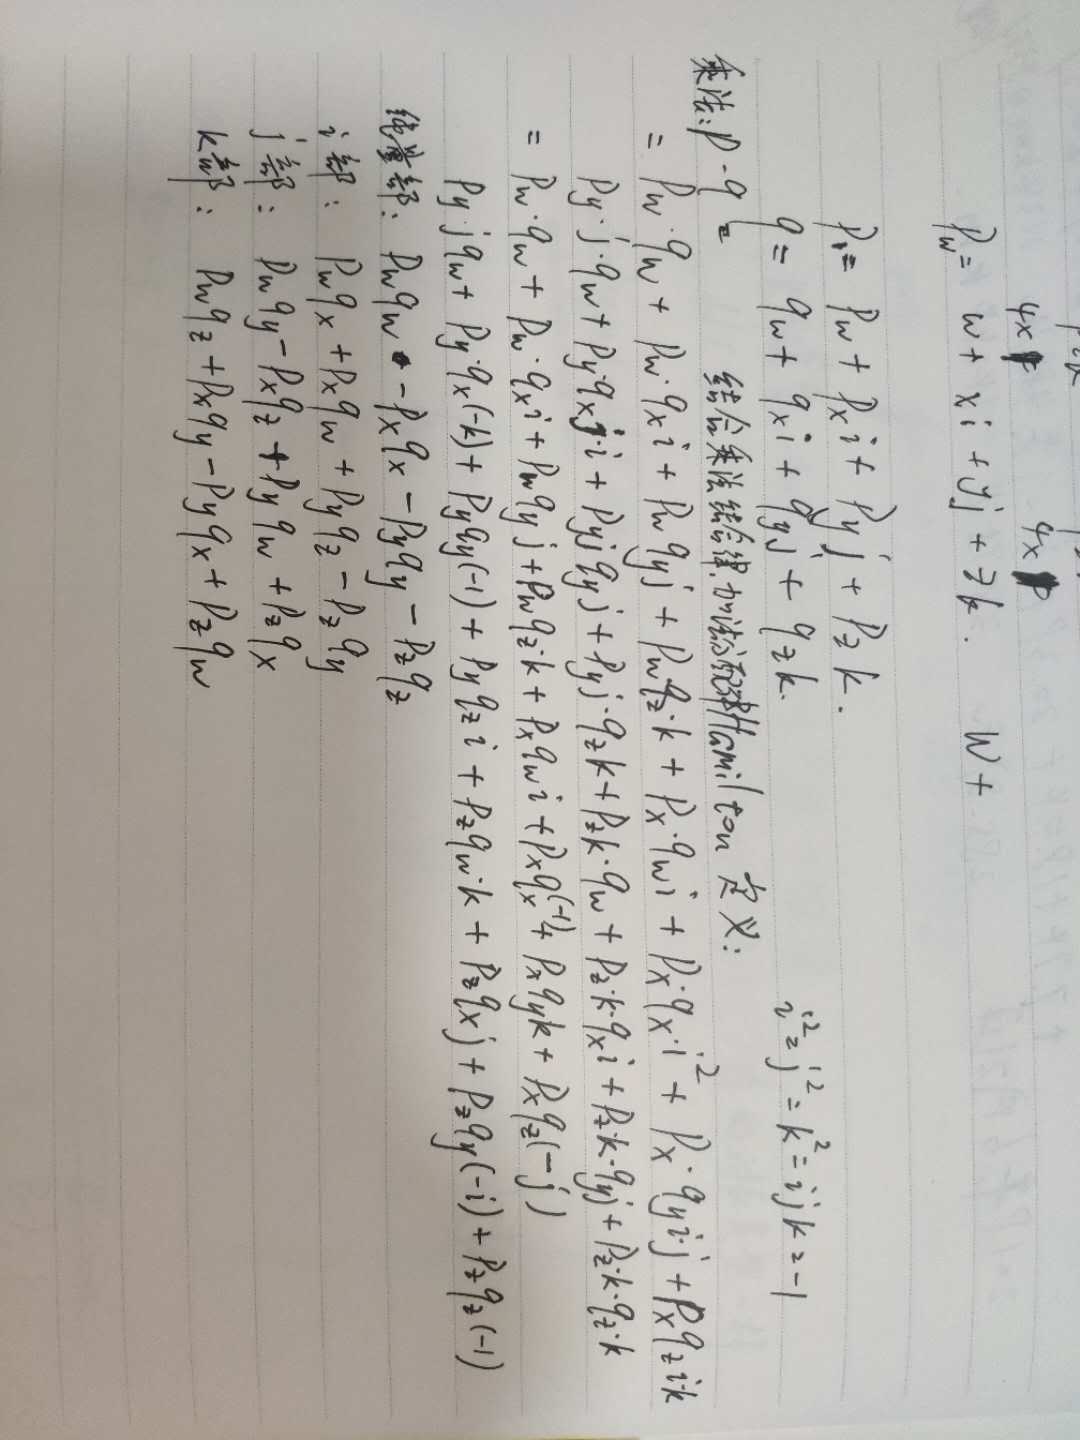 4x 4x
Pw = w + xi + yj + zk. W +
P1 = Pw + Px i + Py j + Pz k.
q = qw + qx i + qy j + qz k. i² = j² = k² = ijk = -1
乘法: P·q = 结合乘法结合律,加法分配律Hamilton 定义:
= Pw·qw + Pw·qx i + Pw qy j + Pw·qz·k + Px·qw i + Px·qx·i² + Px·qy i·j + Px qz i·k
Py·j·qw + Py·qx j·i + Py j qy j + Py j·qz k + Pz k·qw + Pz·k·qx i + Pz·k·qy j + Pz·k·qz·k
= Pw·qw + Pw·qx i + Pw qy j + Pw qz·k + Px qw i + Px qx(-1) + Px qy k + Px qz(-j)
Py·j qw + Py·qx(-k) + Py qy(-1) + Py qz i + Pz qw·k + Pz qx j + Pz qy(-i) + Pz qz(-1)
纯量部: Pw qw - Px qx - Py qy - Pz qz
i 部: Pw qx + Px qw + Py qz - Pz qy
j 部: Pw qy - Px qz + Py qw + Pz qx
k部: Pw qz + Px qy - Py qx + Pz qw